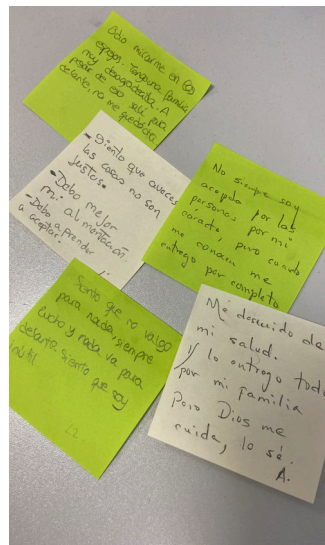 Odio mirarme en los
espejos. Tengo una familia
muy desagradecida. A
pesar de eso salí para
delante, no me quedé ahí
- Siento que aveces
las cosas no son
justas.
- Debo mejor
mi alimentación.
- Debo aprender
a aceptar.
No siempre soy
acepta por las
personas, por mi
caracter, pero cuando
me conocen me
entrego por completo
Siento que no valgo
para nada, siempre
lucho y nada va para
delante. Siento que soy
inútil
Me descuido de
mi salud.
y lo entrego todo
por mi familia
Pero Dios me
cuida, lo sé.
A.